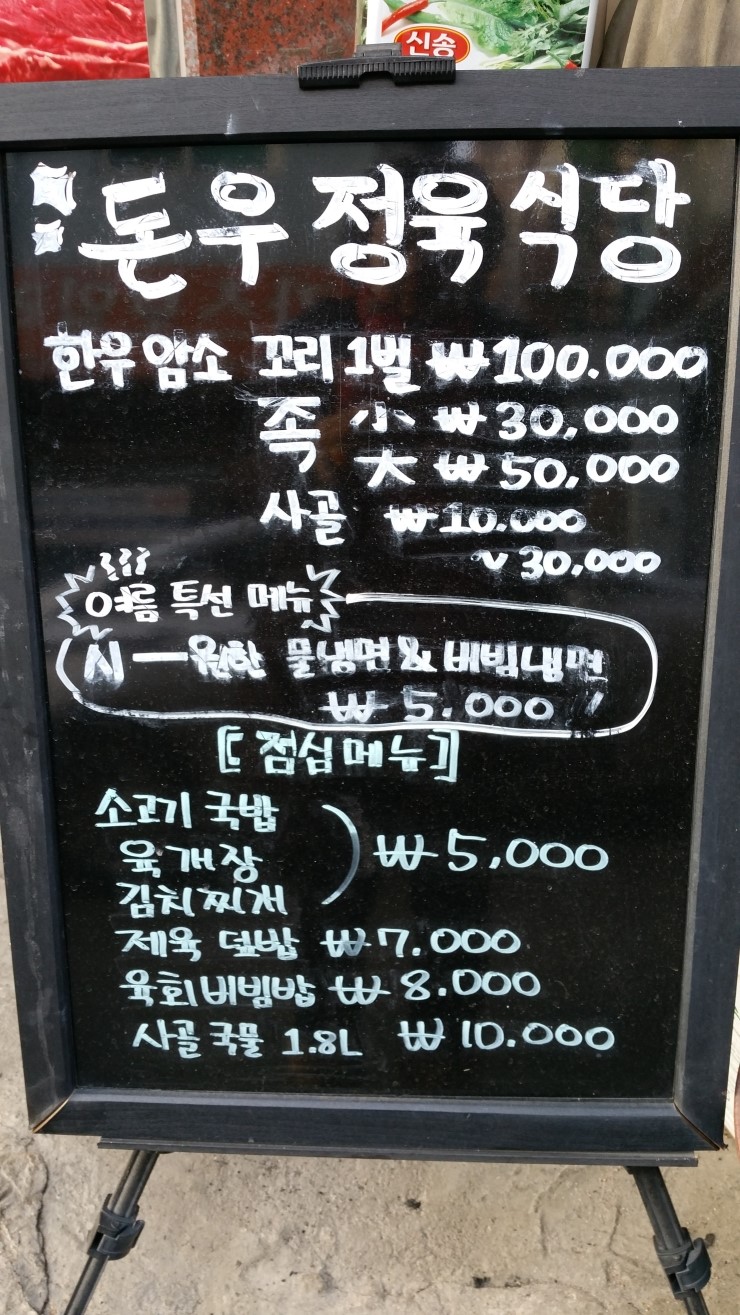 신송
돈우 정육식당
한우암소 꼬리 1벌 ₩100.000
족 小 ₩30,000
大 ₩50,000
사골 ₩10.000
~30,000
여름 특선 메뉴
시—원한 물냉면 & 비빔냉면
₩5.000
[점심메뉴]
소고기 국밥
육개장 ₩5,000
김치찌개
제육 덮밥 ₩7.000
육회비빔밥 ₩8.000
사골국물 1.8L ₩10.000